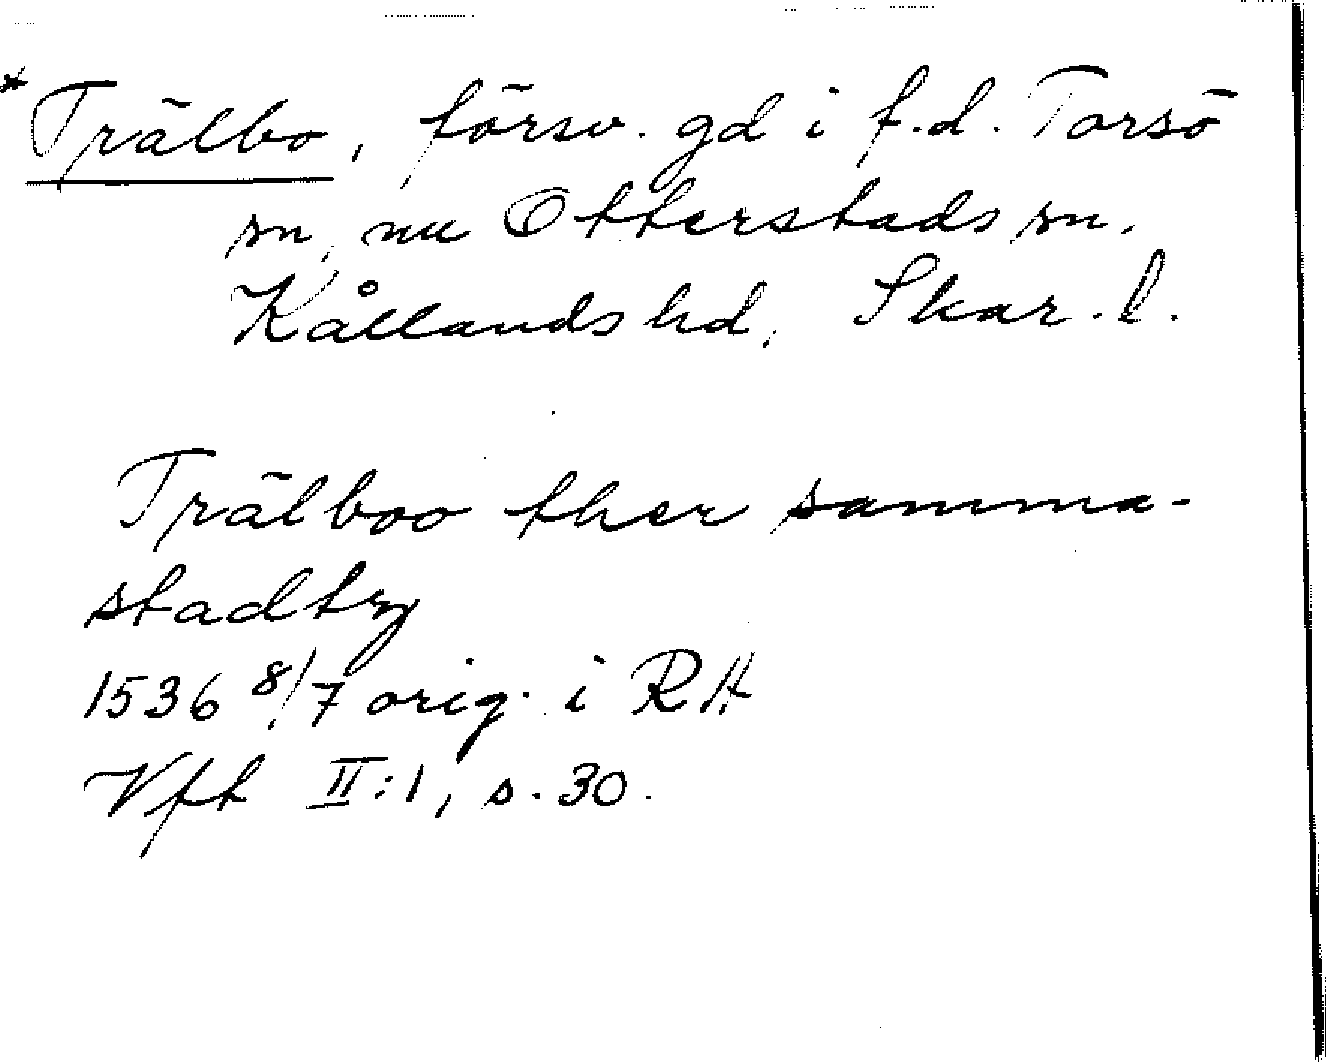 *Trälbo, försv. gd i f.d. Torsö
sn, nu Otterstads sn.
Kållands hd, Skar. l.
Trälboo ther samma-
stadtz
1536 8/7 orig. i RA
Vft II:1, s. 30.